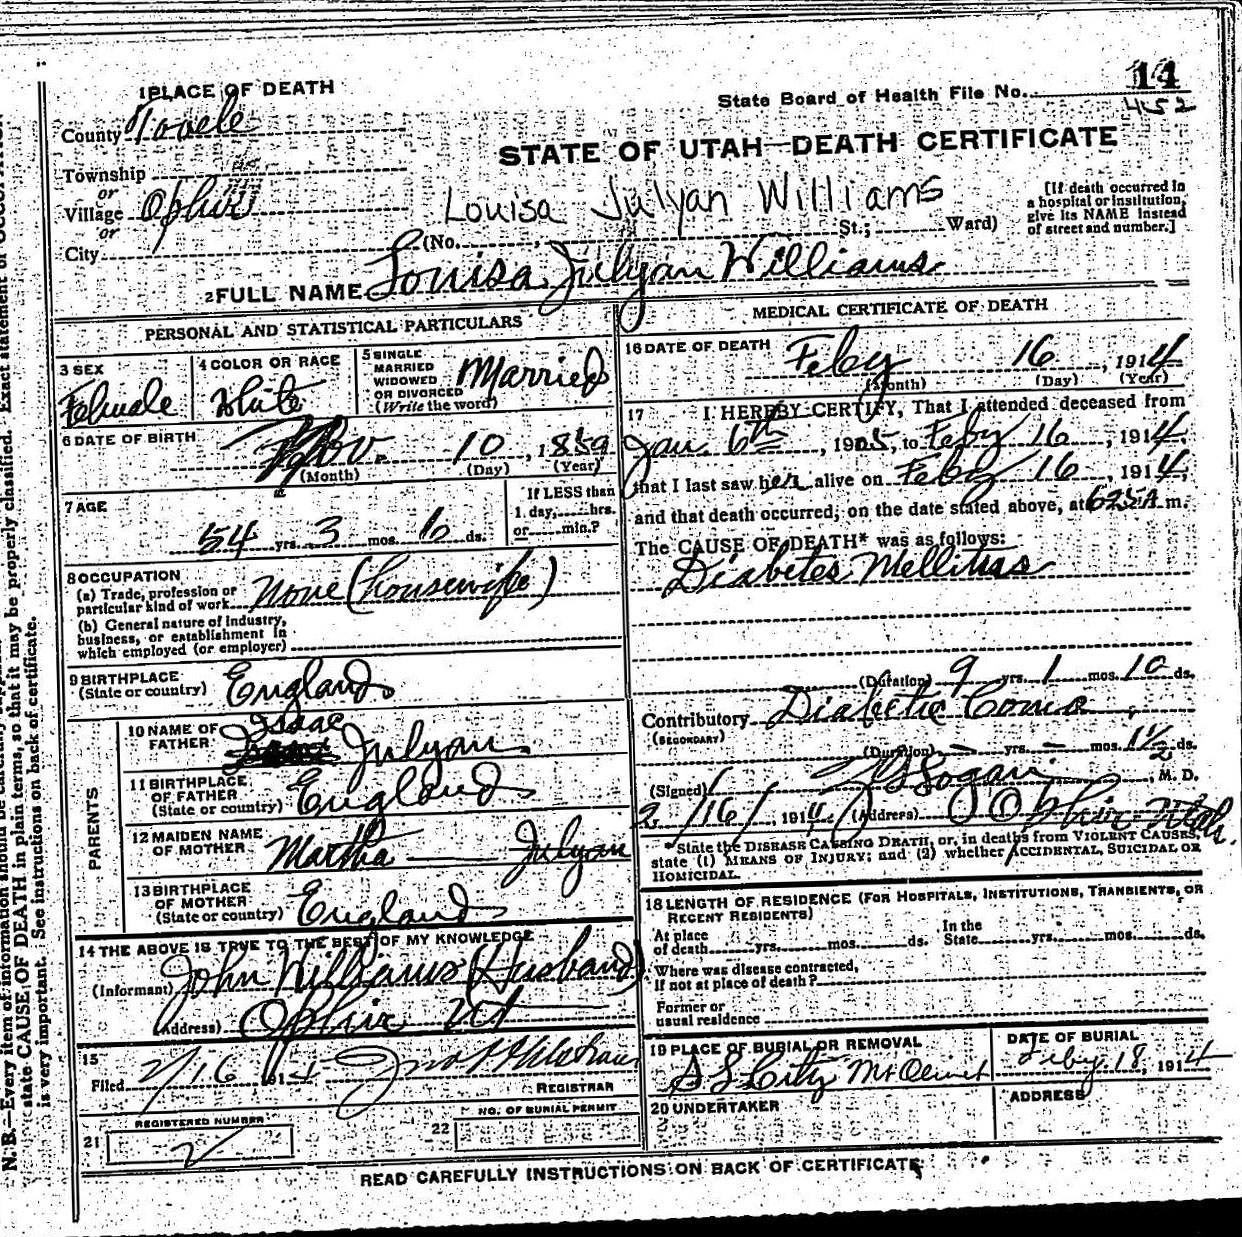 1 PLACE OF DEATH
County Tooele
Township
or
Village Ophir
or
City
State Board of Health File No. 14
452
STATE OF UTAH—DEATH CERTIFICATE
Louisa Julyan Williams
(No. , St.; Ward)
[If death occurred in
a hospital or institution,
give its NAME instead
of street and number.]
2 FULL NAME Louisa Julyan Williams
PERSONAL AND STATISTICAL PARTICULARS
3 SEX
Female
4 COLOR OR RACE
White
5 SINGLE
MARRIED
WIDOWED
OR DIVORCED
(Write the word)
Married
6 DATE OF BIRTH
Nov. 10, 1859
(Month) (Day) (Year)
7 AGE
54 yrs. 3 mos. 6 ds.
If LESS than
1 day, hrs.
or min.?
8 OCCUPATION
(a) Trade, profession or
particular kind of work None (housewife)
(b) General nature of industry,
business, or establishment in
which employed (or employer)
9 BIRTHPLACE
(State or country) England
PARENTS
10 NAME OF
FATHER Isaac Julyan
11 BIRTHPLACE
OF FATHER
(State or country) England
12 MAIDEN NAME
OF MOTHER Martha — Julyan
13 BIRTHPLACE
OF MOTHER
(State or country) England
14 THE ABOVE IS TRUE TO THE BEST OF MY KNOWLEDGE
(Informant) John Williams (Husband)
(Address) Ophir Ut
15
Filed 2/16 1914
REGISTRAR
21 REGISTERED NUMBER
2
22 NO. OF BURIAL PERMIT
MEDICAL CERTIFICATE OF DEATH
16 DATE OF DEATH
Feby 16, 1914
(Month) (Day) (Year)
17 I HEREBY CERTIFY, That I attended deceased from
Jan. 6th, 1905, to Feby 16, 1914,
that I last saw her alive on Feby 16, 1914,
and that death occurred, on the date stated above, at 625 A m.
The CAUSE OF DEATH* was as follows:
Diabetes Mellitus
(Duration) 9 yrs. 1 mos. 10 ds.
Contributory Diabetic Coma
(SECONDARY)
(Duration) – yrs. – mos. 1 1/2 ds.
(Signed) M. D.
2/16/, 1914 (Address) Ophir Utah.
*State the DISEASE CAUSING DEATH, or, in deaths from VIOLENT CAUSES,
state (1) MEANS OF INJURY; and (2) whether ACCIDENTAL, SUICIDAL OR
HOMICIDAL.
18 LENGTH OF RESIDENCE (FOR HOSPITALS, INSTITUTIONS, TRANSIENTS, OR
RECENT RESIDENTS)
At place
of death yrs. mos. ds.
In the
State yrs. mos. ds.
Where was disease contracted,
if not at place of death?
Former or
usual residence
19 PLACE OF BURIAL OR REMOVAL
S L City Mt Olivet
DATE OF BURIAL
Feby. 18, 1914
20 UNDERTAKER
ADDRESS
READ CAREFULLY INSTRUCTIONS ON BACK OF CERTIFICATE
N. B.—Every item of information should be carefully
state CAUSE OF DEATH in plain terms, so that it may be properly classified. Exact statement of
is very important. See instructions on back of certificate.